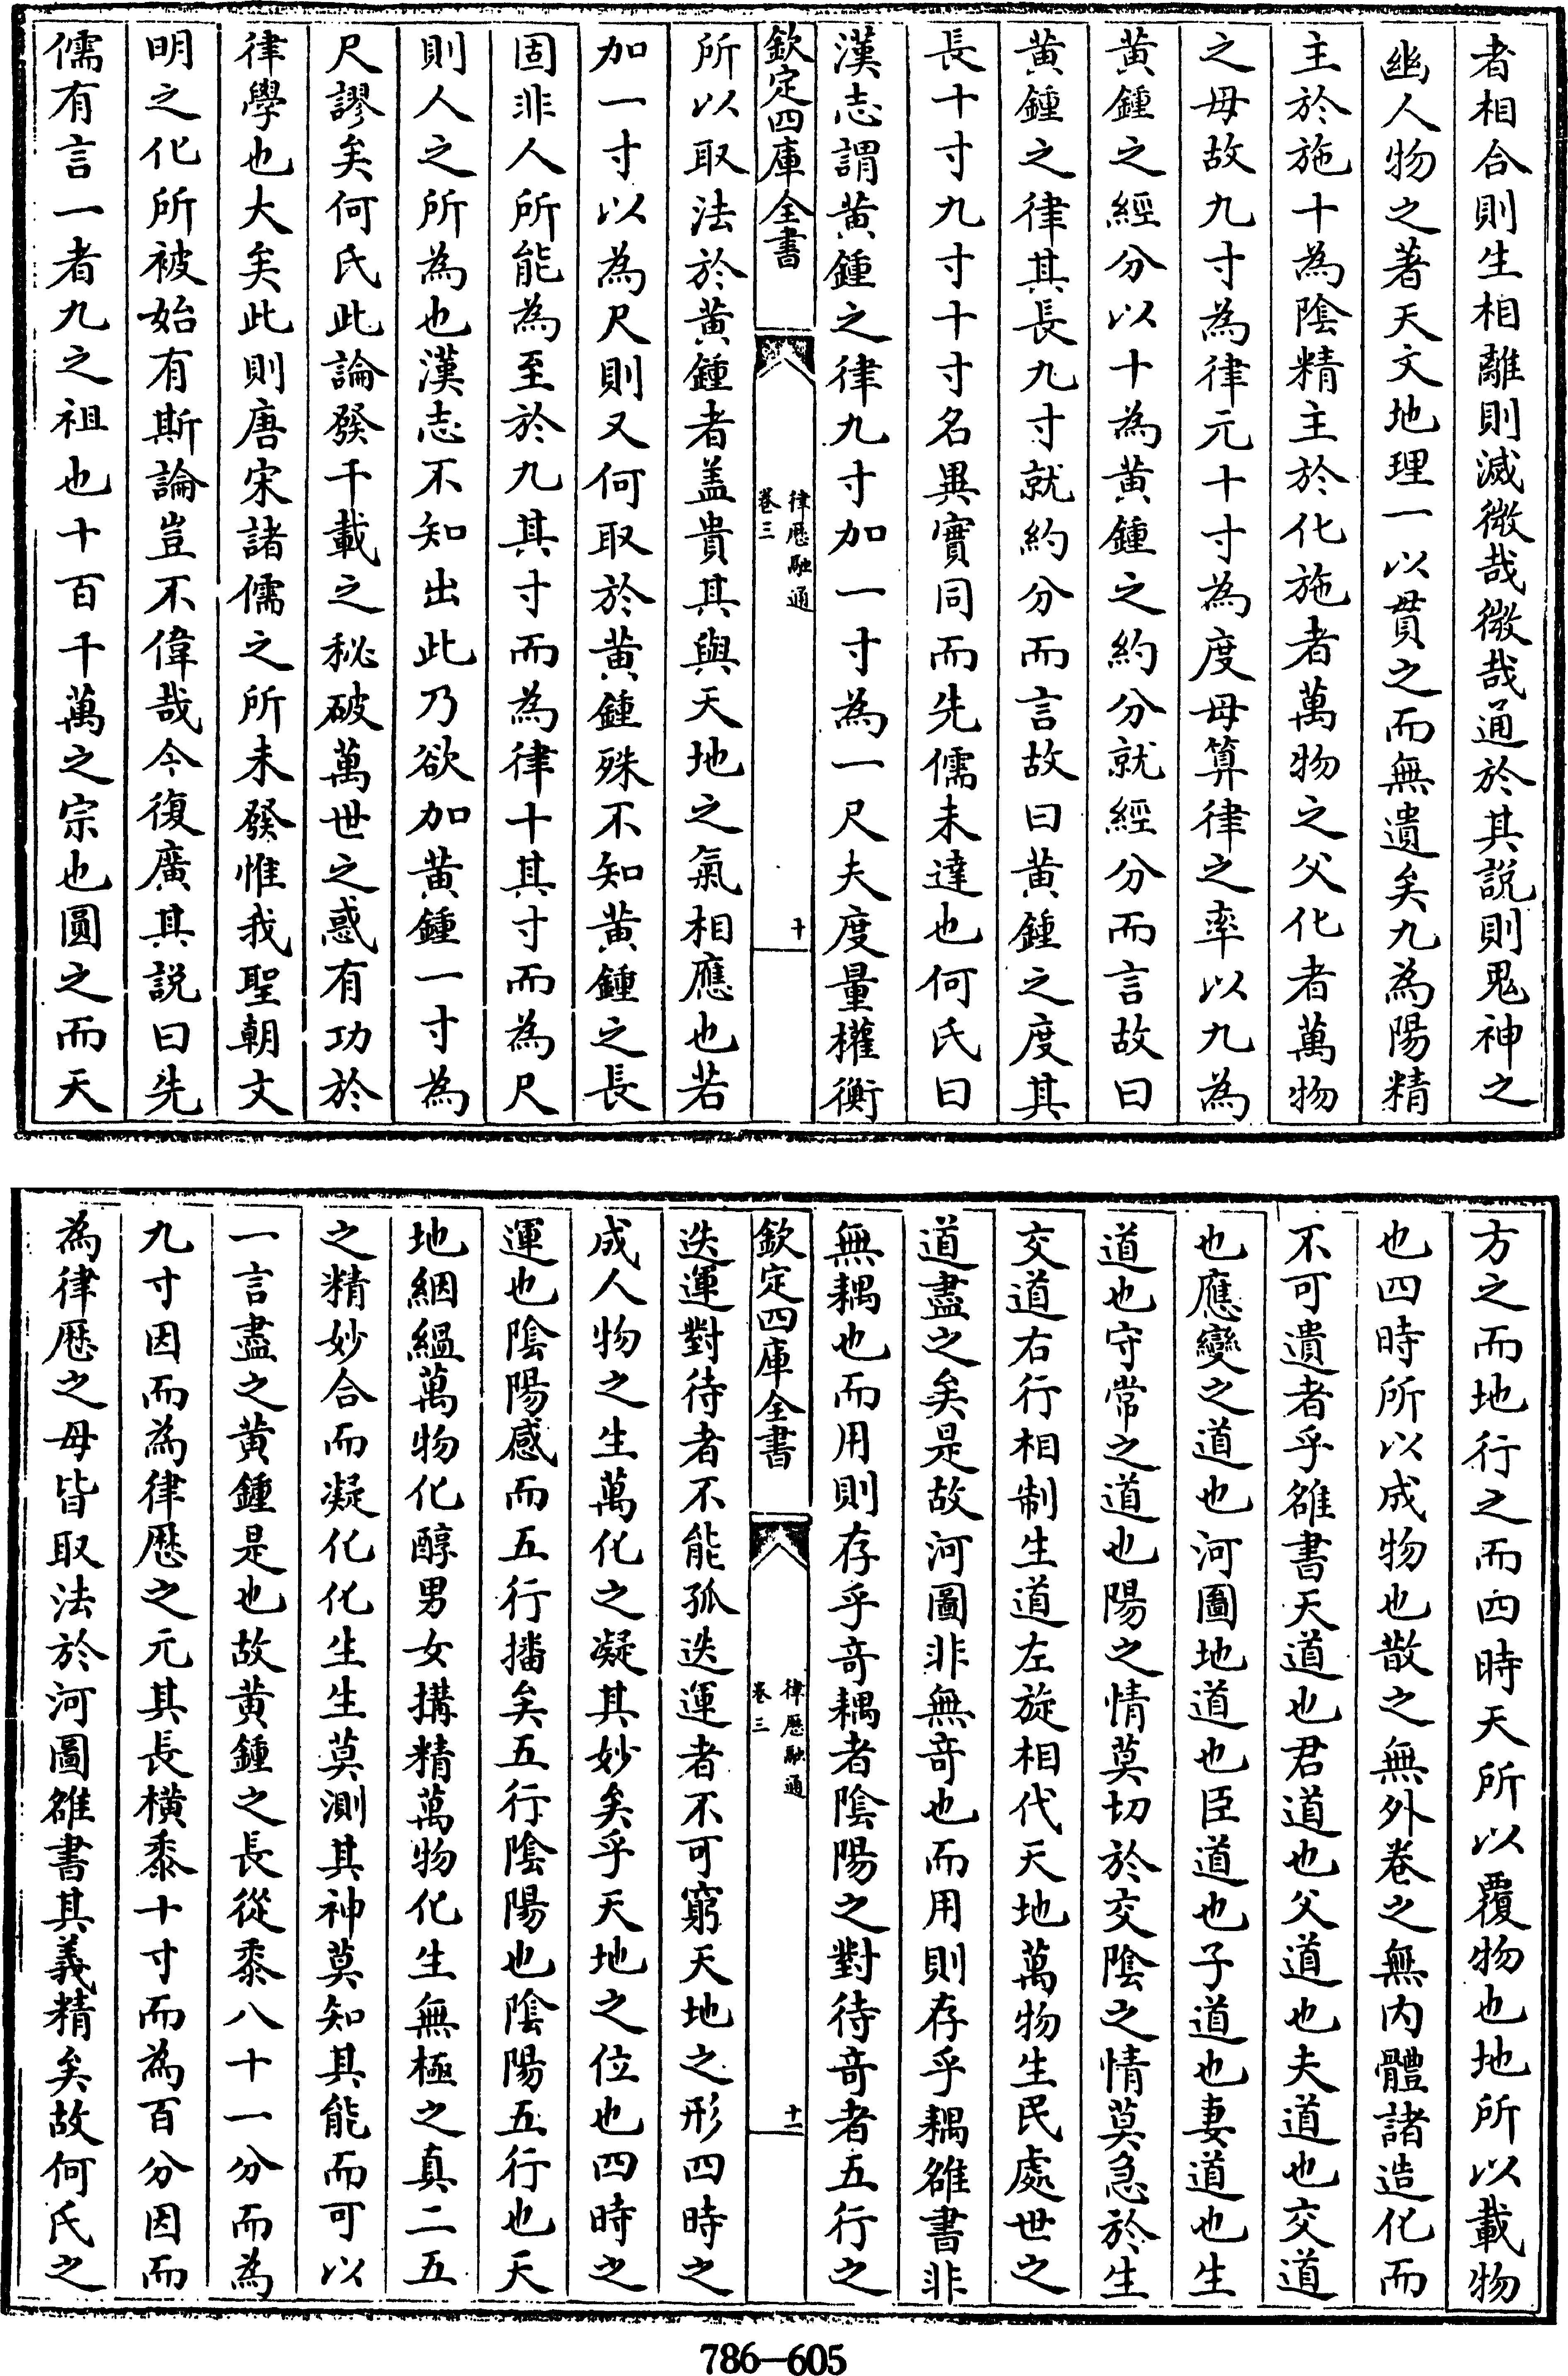 者相合則生相離則滅微哉微哉通於其説則鬼神之
幽人物之著天文地理一以貫之而無遺矣九為陽精
主於施十為陰精主於化施者萬物之父化者萬物
之母故九寸為律元十寸為度母算律之率以九為
黄鍾之經分以十為黄鍾之約分就經分而言故曰
黄鍾之律其長九寸就約分而言故曰黄鍾之度其
長十寸九寸十寸名異實同而先儒未達也何氏曰
漢志謂黄鍾之律九寸加一寸為一尺夫度量權衡
欽定四庫全書
律厯融通
卷三
十
所以取法於黄鍾者盖貴其與天地之氣相應也若
加一寸以為尺則又何取於黄鍾殊不知黄鍾之長
固非人所能為至於九其寸而為律十其寸而為尺
則人之所為也漢志不知出此乃欲加黄鍾一寸為
尺謬矣何氏此論發千載之秘破萬世之惑有功於
律學也大矣此則唐宋諸儒之所未發惟我聖朝文
明之化所被始有斯論豈不偉哉今復廣其説曰先
儒有言一者九之祖也十百千萬之宗也圓之而天
方之而地行之而四時天所以覆物也地所以載物
也四時所以成物也散之無外卷之無内體諸造化而
不可遺者乎雒書天道也君道也父道也夫道也交道
也應變之道也河圖地道也臣道也子道也妻道也生
道也守常之道也陽之情莫切於交陰之情莫急於生
交道右行相制生道左旋相代天地萬物生民處世之
道盡之矣是故河圖非無竒也而用則存乎耦雒書非
無耦也而用則存乎竒耦者陰陽之對待竒者五行之
欽定四庫全書
律厯融通
卷三
十一
迭運對待者不能孤迭運者不可窮天地之形四時之
成人物之生萬化之凝其妙矣乎天地之位也四時之
運也陰陽感而五行播矣五行陰陽也陰陽五行也天
地絪緼萬物化醇男女搆精萬物化生無極之真二五
之精妙合而凝化化生生莫測其神莫知其能而可以
一言盡之黄鍾是也故黄鍾之長從黍八十一分而為
九寸因而為律厯之元其長橫黍十寸而為百分因而
為律厯之母皆取法於河圖雒書其義精矣故何氏之
786—605